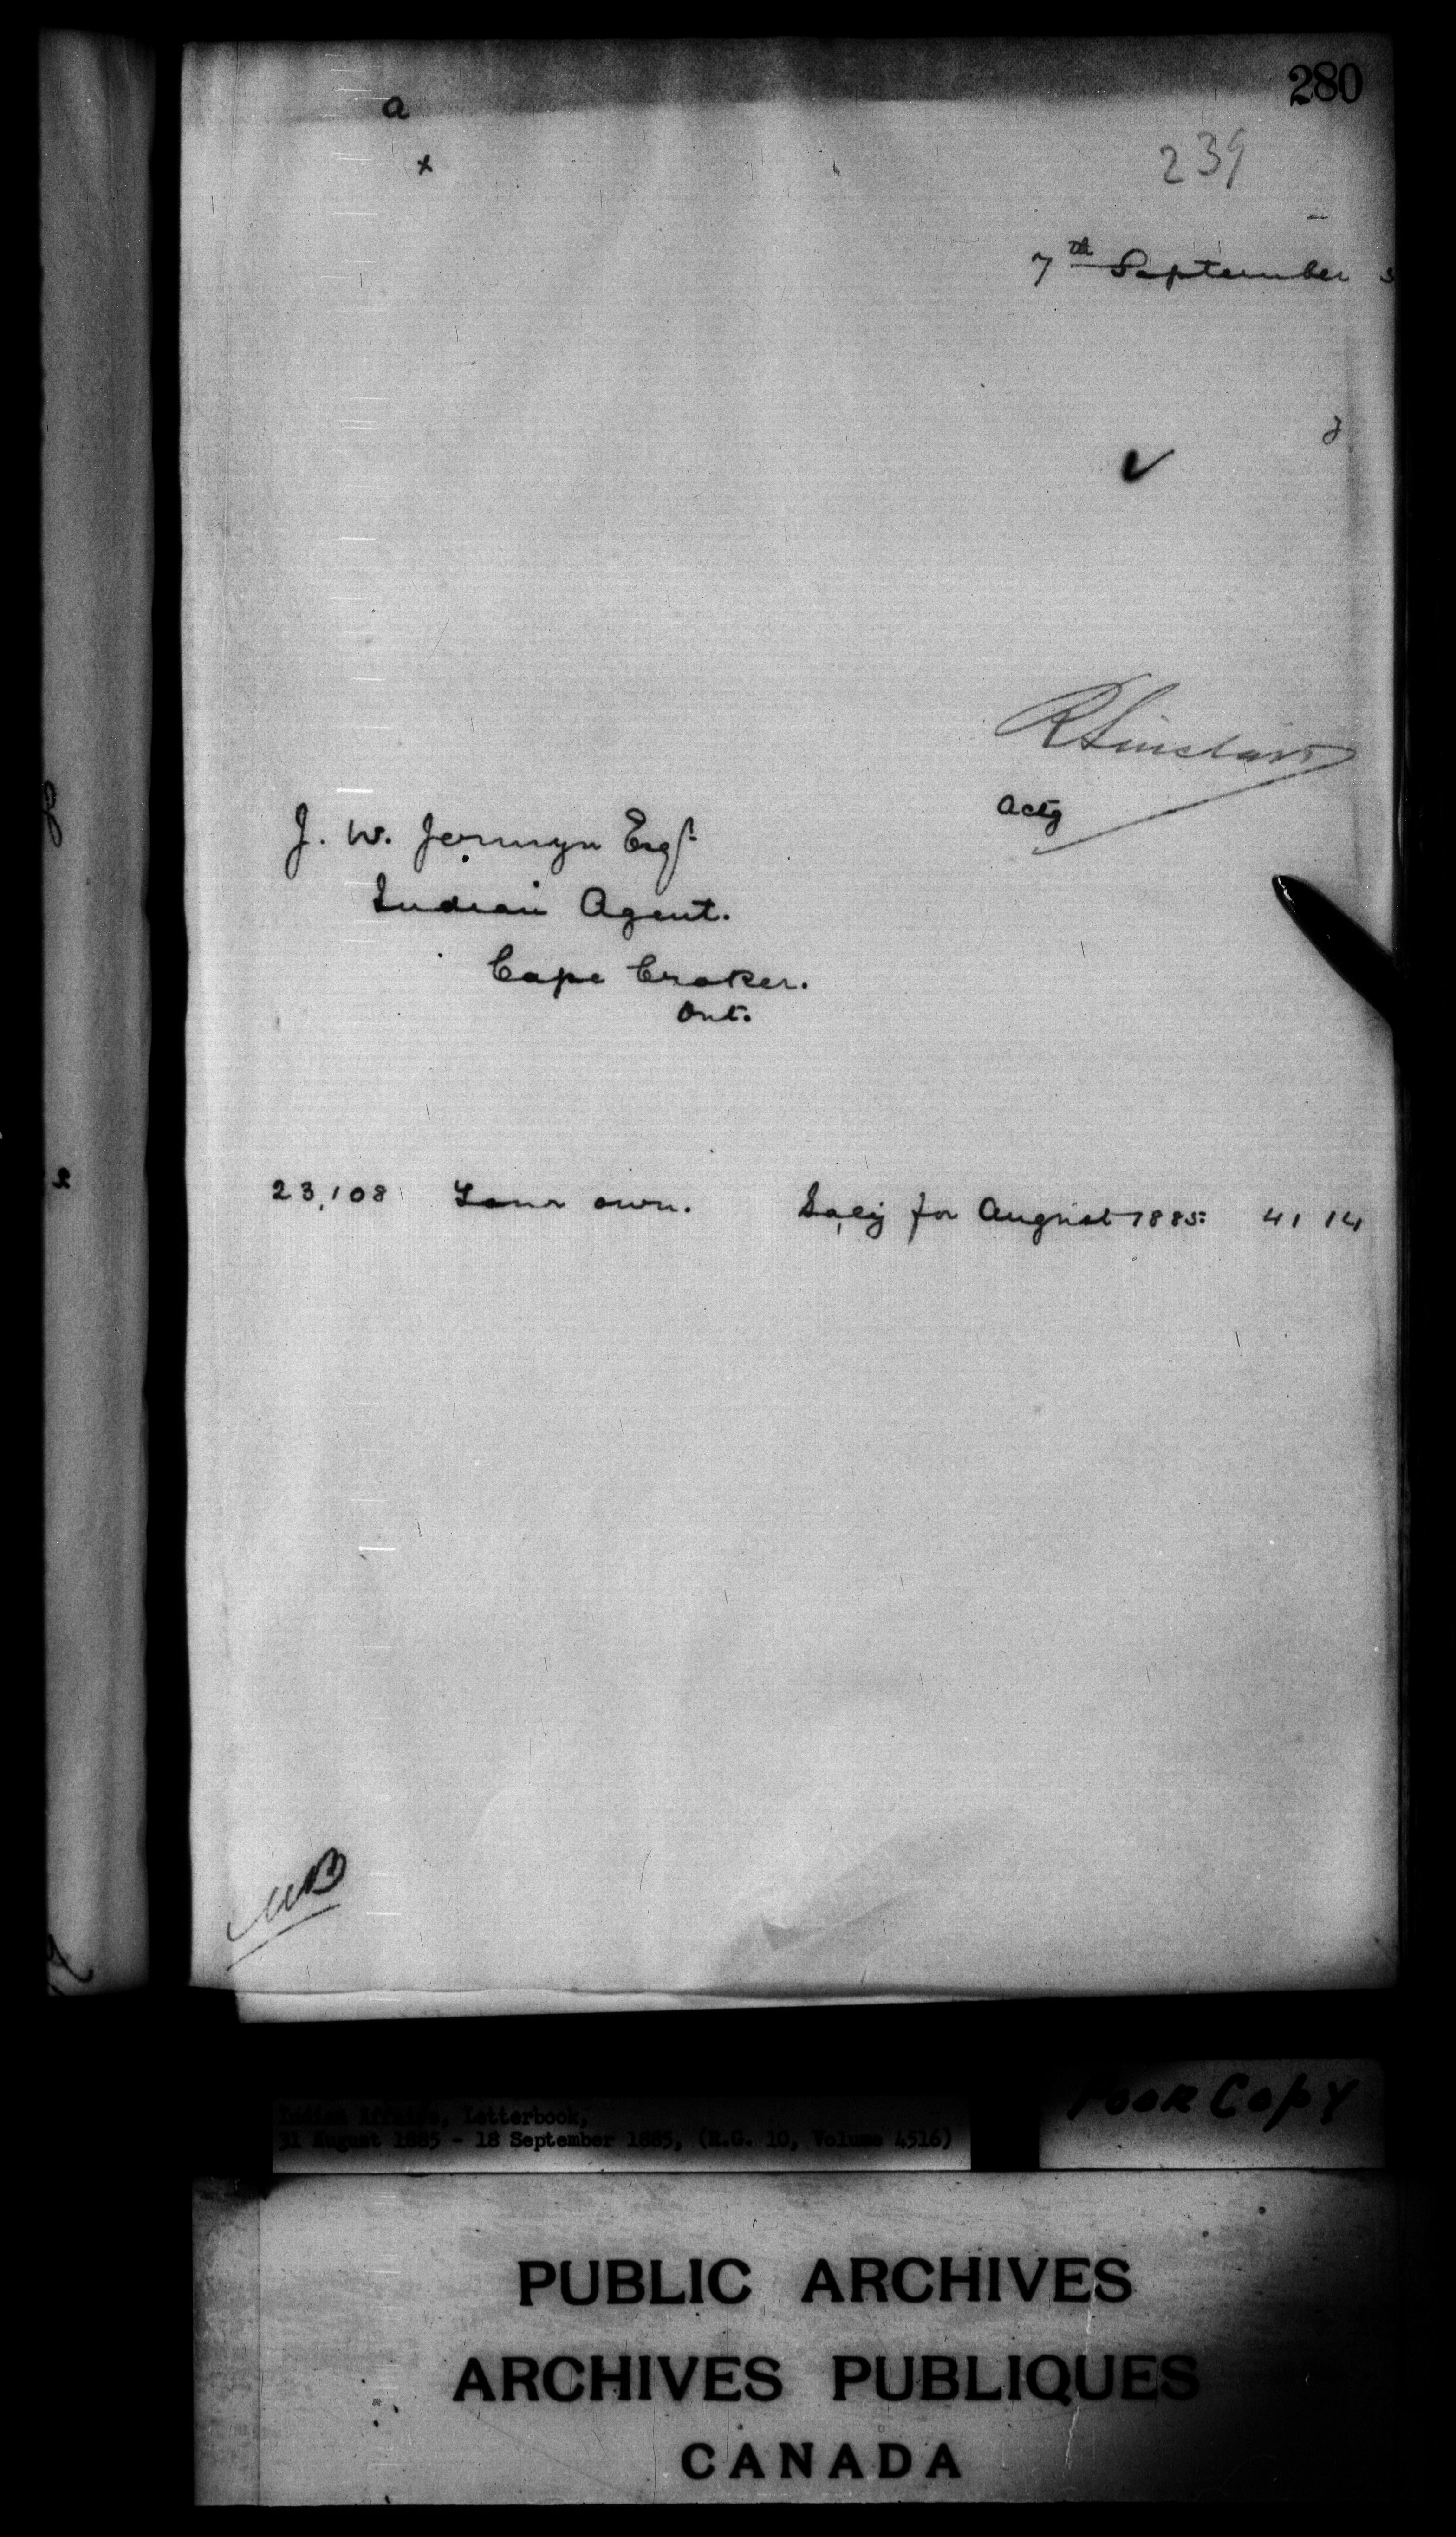 280
a
x
239
7th September
R Sinclair
Actg
J. W. Jermyn Esqr
Indian Agent.
Cape Croker.
Ont.
23,108 Your own. Saly for August 1885: 41 14
MB
Poor Copy
Indian Affairs, Letterbook,
31 August 1885 - 18 September 1885, (R.G. 10, Volume 4516)
PUBLIC ARCHIVES
ARCHIVES PUBLIQUES
CANADA